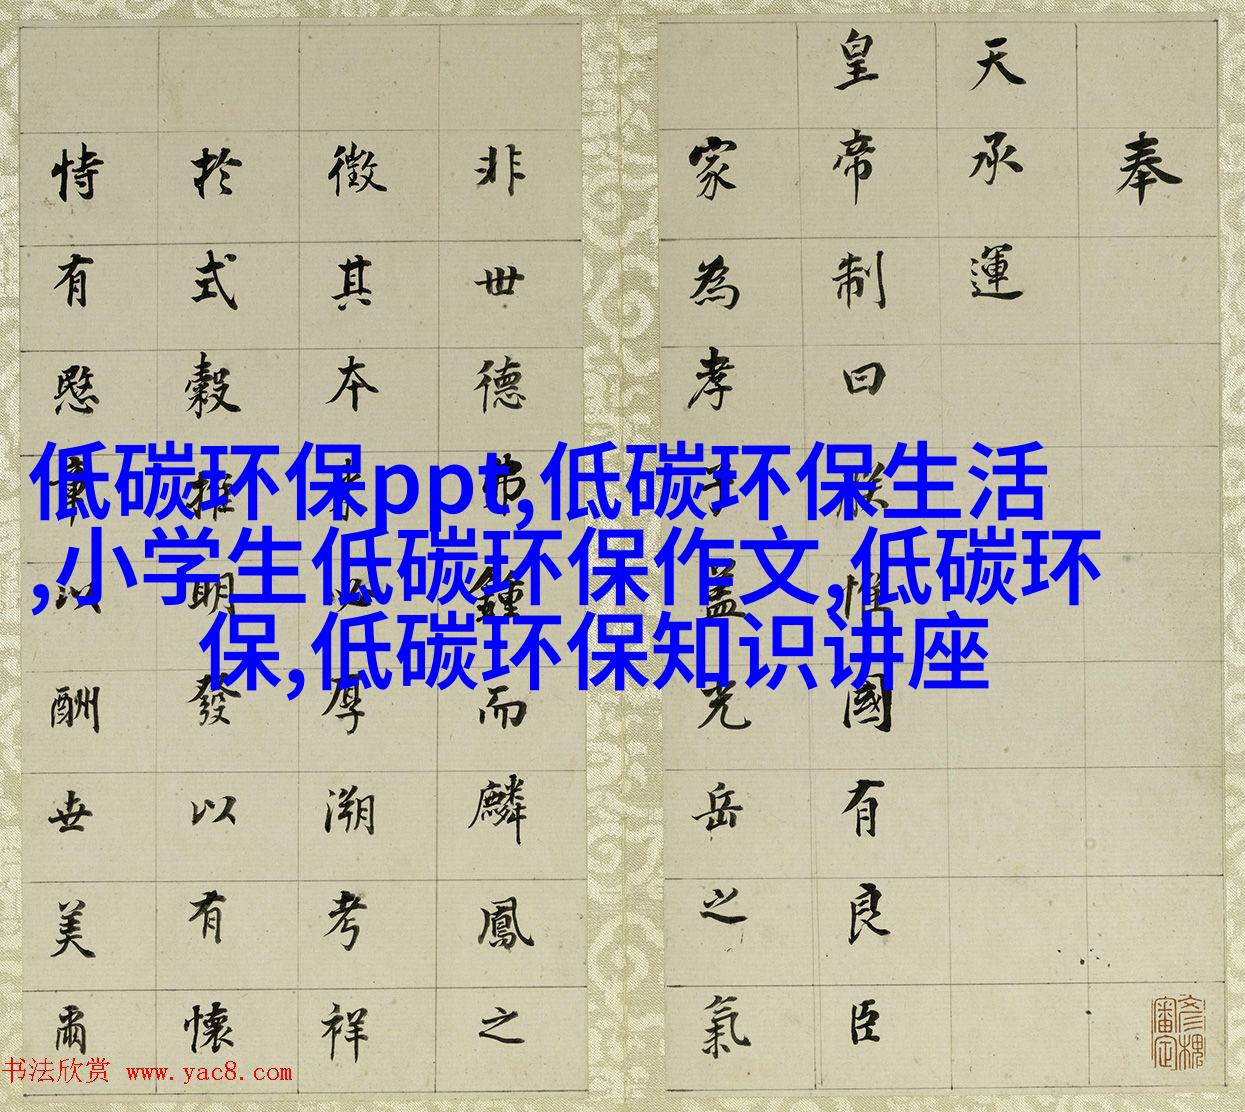 奉
天承運
皇帝制曰朕惟國有良臣
家為孝子蓋光岳之氣
非世德弗鍾而麟鳳之
徵其本必厚溯考祥
於式穀推明發以有懷
恃有愍章以酬世美爾
低碳环保ppt,低碳环保生活
,小学生低碳环保作文,低碳环
保,低碳环保知识讲座
书法欣赏 www.yac8.com